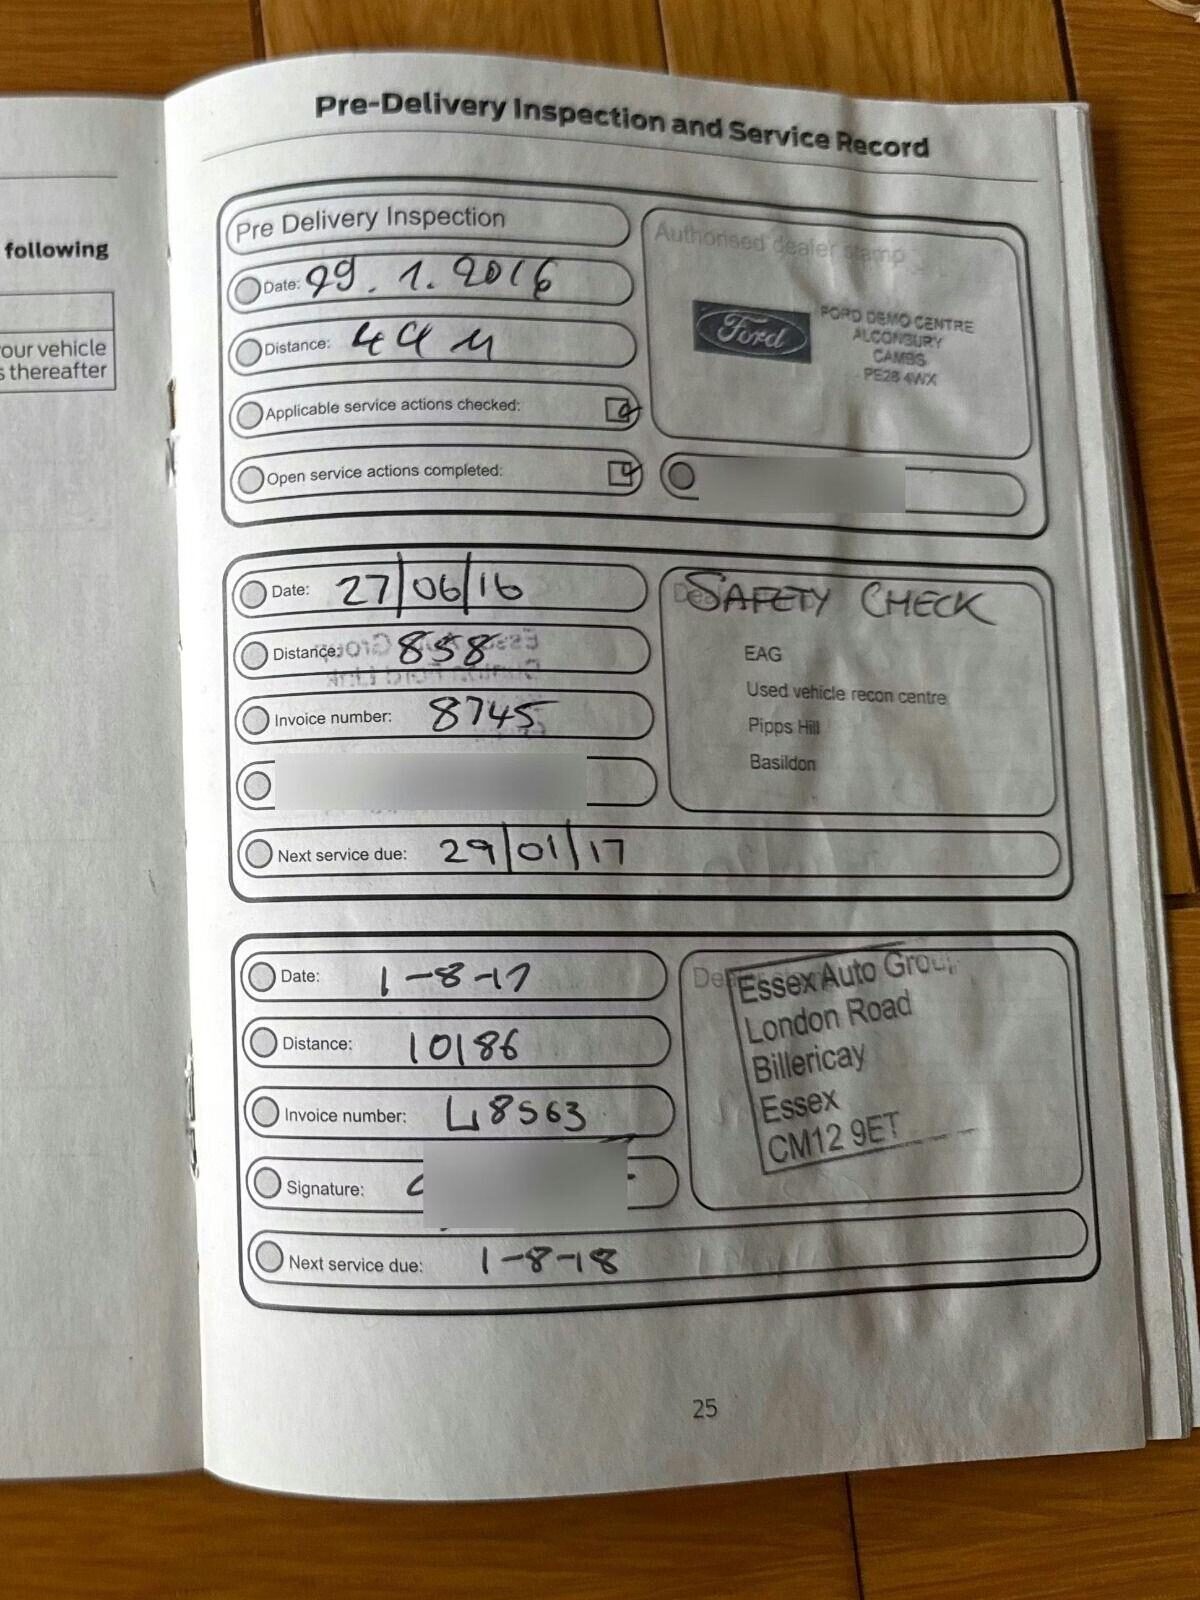 following
our vehicle
s thereafter
Pre-Delivery Inspection and Service Record
Pre Delivery Inspection
Date: 29.1.2016
Distance:
Applicable service actions checked:
Open service actions completed:
Authorised dealer stamp
Ford
FORD DEMO CENTRE
ALCONBURY
CAMBS
PE28 4WX
Date: 27/06/16
Distance: 858
Invoice number: 8745
Next service due: 29/01/17
SAFETY CHECK
EAG
Used vehicle recon centre
Pipps Hill
Basildon
Date: 1-8-17
Distance: 10186
Invoice number: 48563
Signature:
Next service due: 1-8-18
Essex Auto Group
London Road
Billericay
Essex
CM12 9ET
25